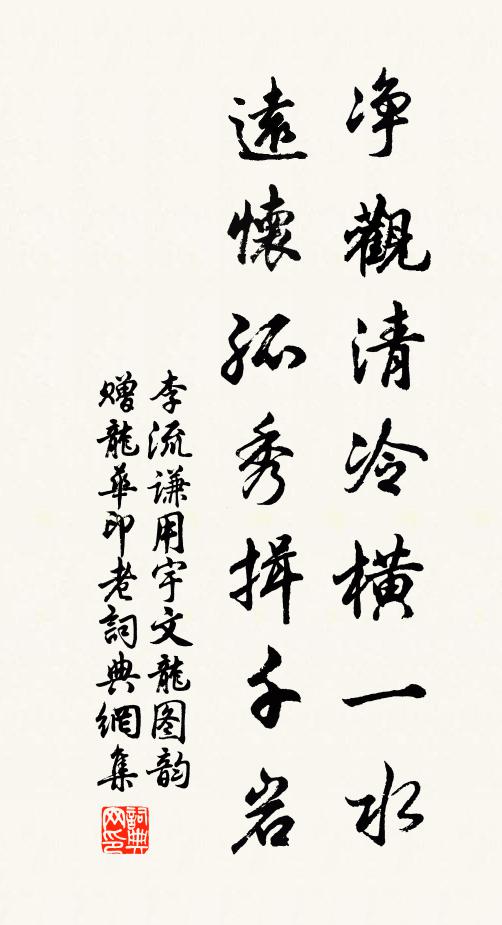 净觀清冷橫一水
遠懷孤秀揖千岩
李流謙用宇文龍图韵
赠龍華印老詞典網集
詞典网印